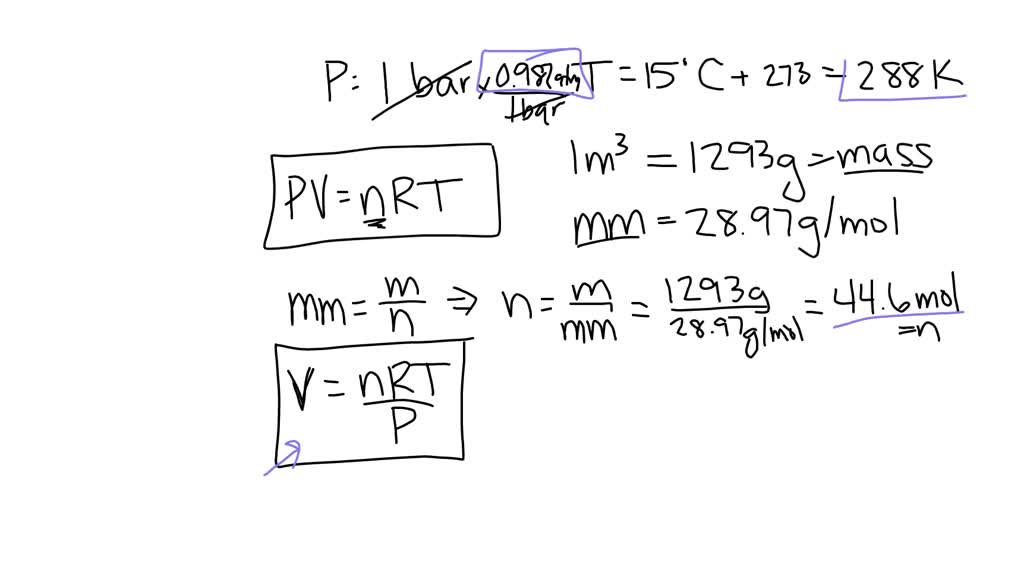 P: 1 bar × 0.987atm/1bar T = 15°C + 273 = 288K
1m³ = 1293g = mass
PV = nRT
mm = 28.97g/mol
mm = m/n ⇒ n = m/mm = 1293g/28.97g/mol = 44.6mol = n
V = nRT/P